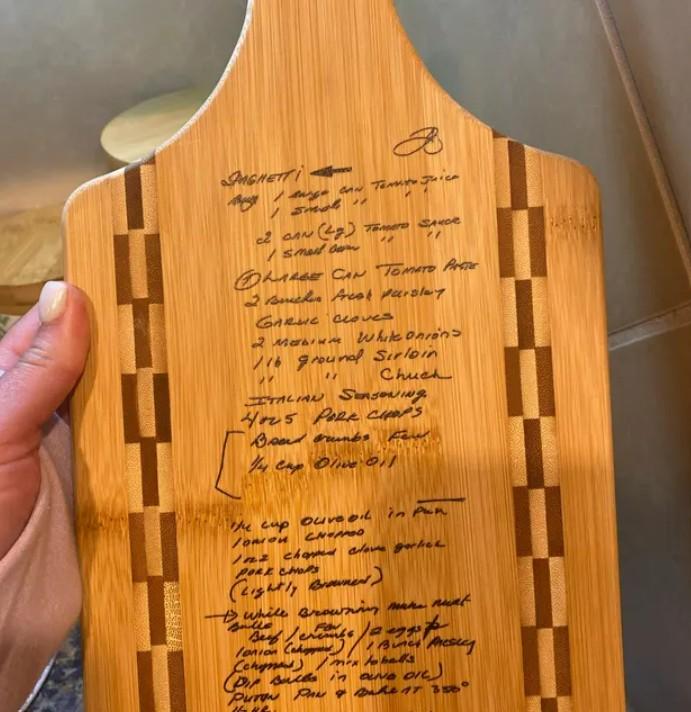 SPAGHETTI ←
Buy 1 large can Tomato Juice
1 Small " " "
2 CAN (Lg) TOMATO SAUCE
1 Small Can " "
① LARGE CAN TOMATO PASTE
2 Bunches fresh parsley
GARLIC CLOVES
2 MEDIUM White Onions
1 lb ground Sirloin
" " Chuck
ITALIAN SEASONING
4 or 5 PORK CHOPS
Bread crumbs Few
1/4 cup Olive Oil
1/4 cup OLIVE OIL in PAN
1 onion CHOPPED
1 or 2 chopped clove garlic
PORK CHOPS
(Lightly Browned)
→ While Browning make meat
Balls Few
Beef / crumbs / 2 eggs
1 onion (chopped) / 1 Bunch PARSLEY
(chopped) / mix to balls
(DIP Balls in OLIVE OIL)
PUT ON PAN & BAKE AT 350°